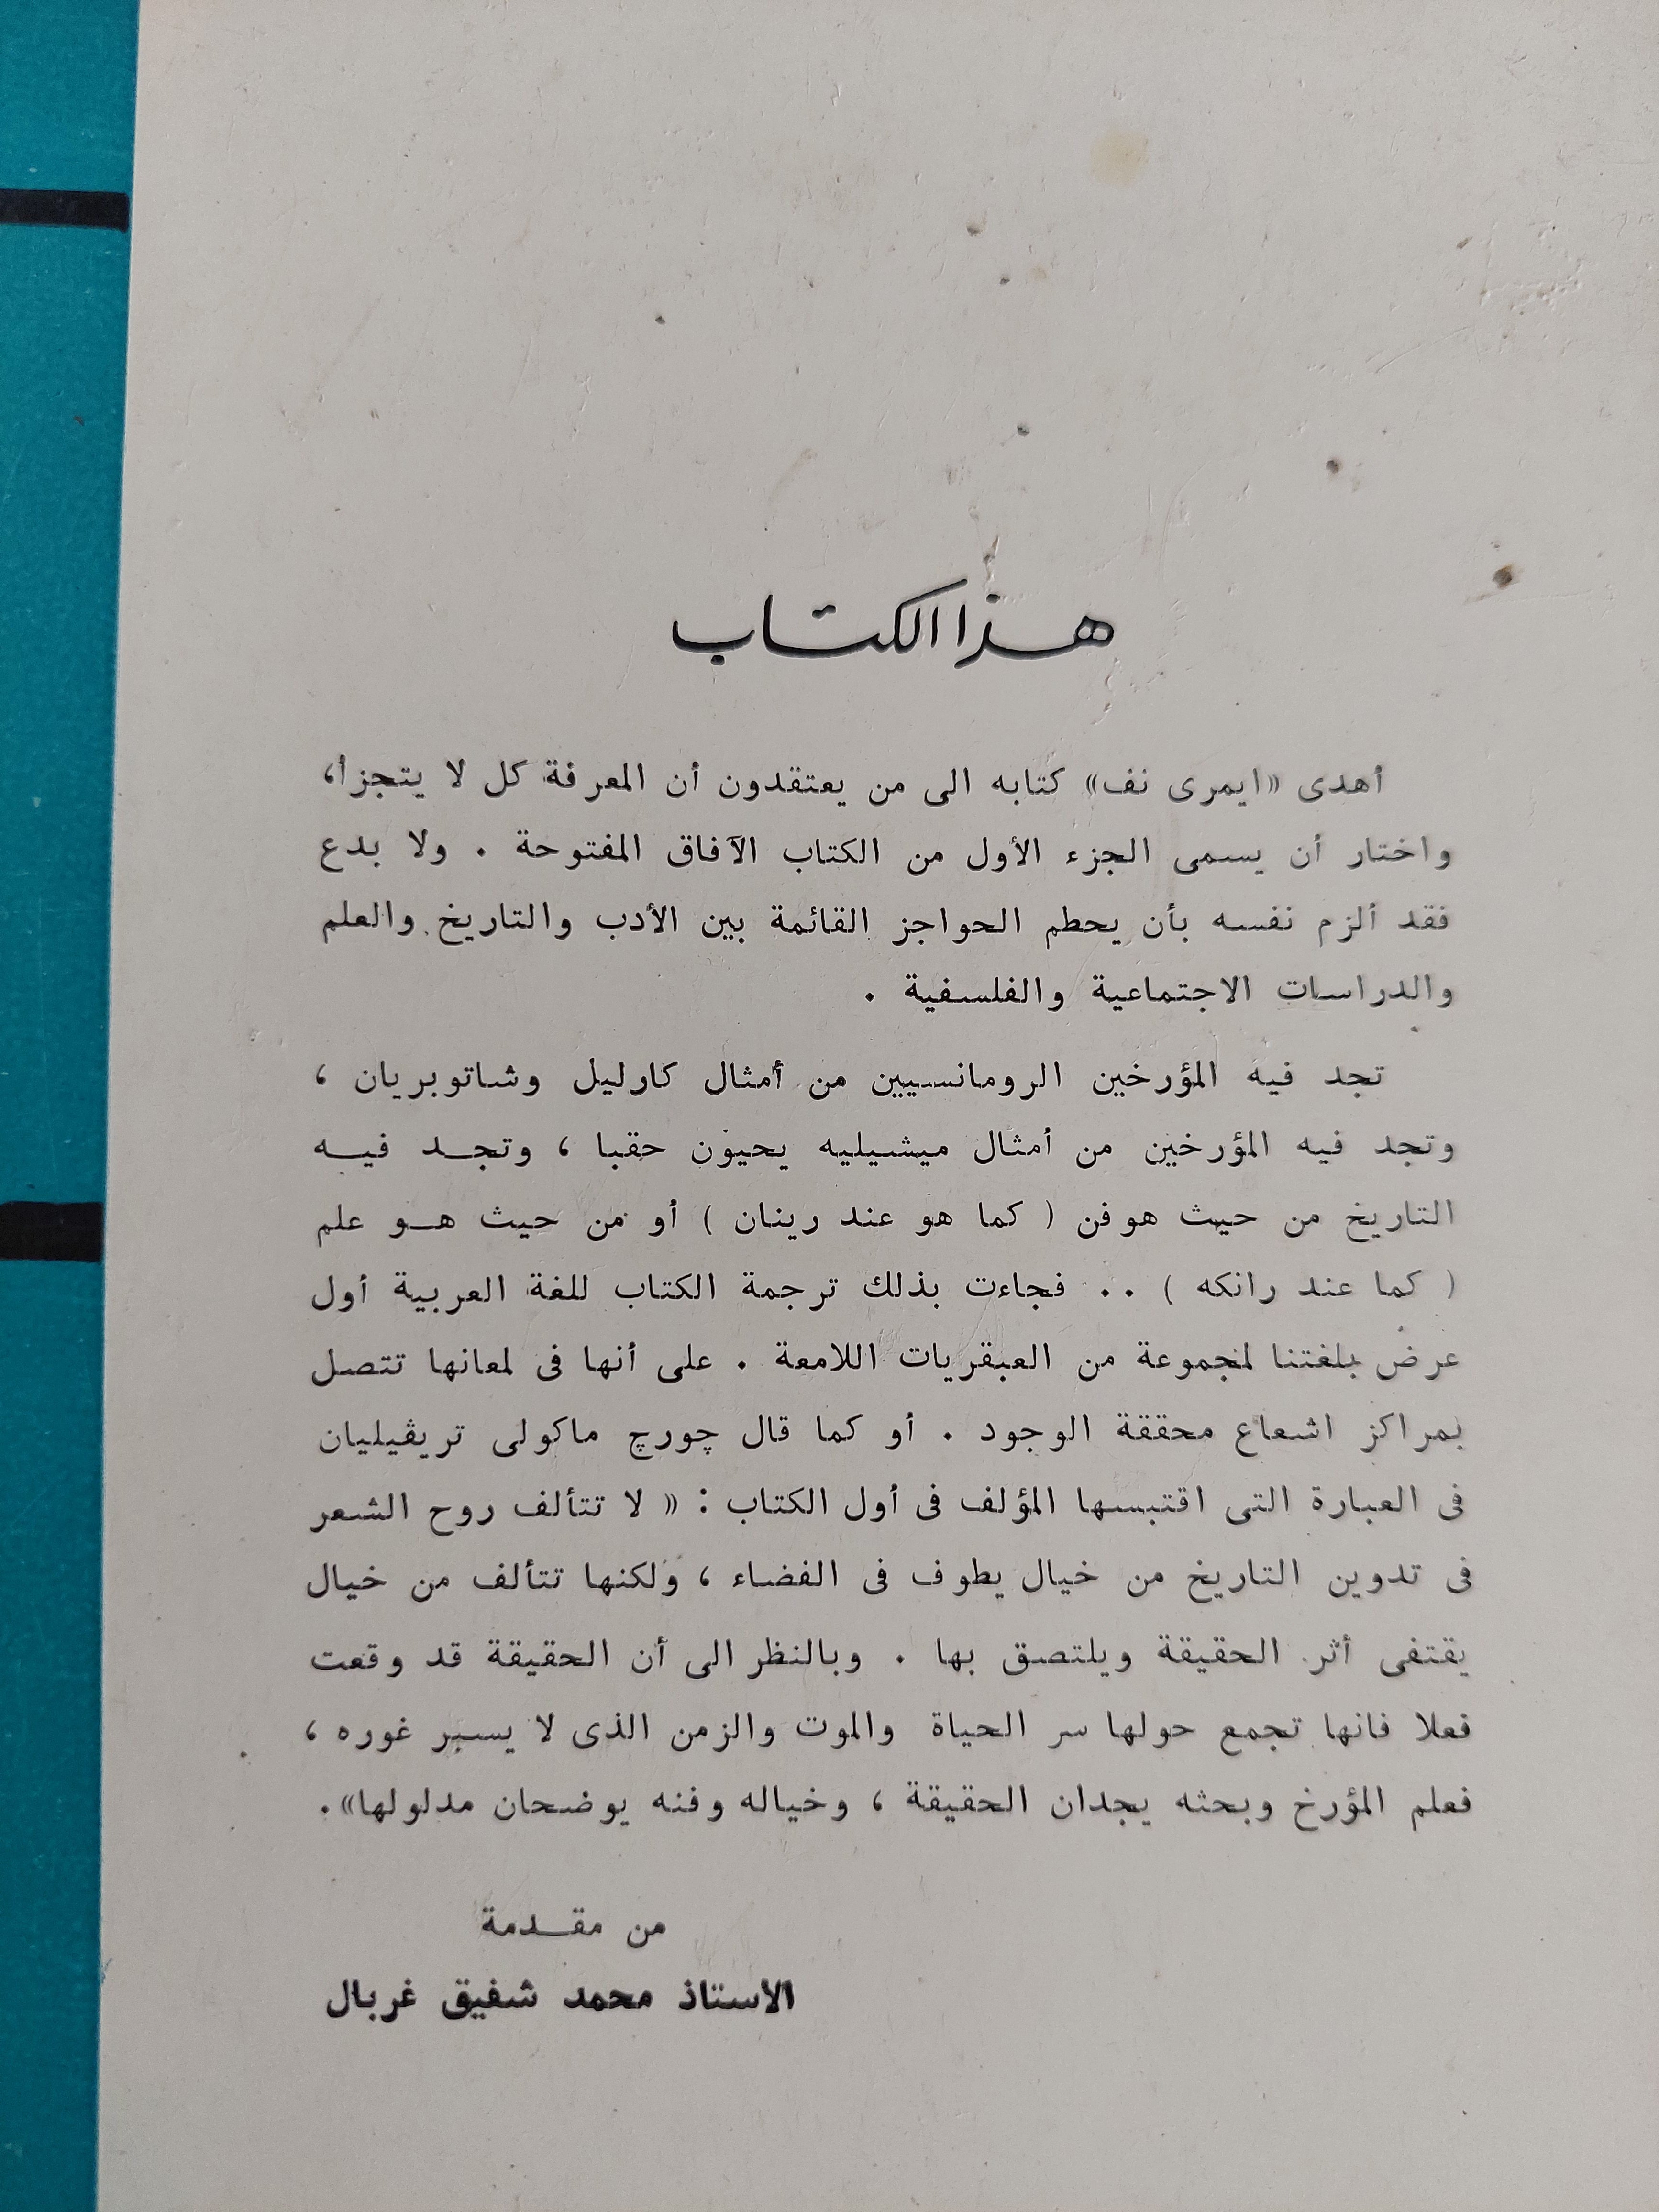 هذا الكتاب
أهدى «ايمرى نف» كتابه الى من يعتقدون أن المعرفة كل لا يتجزأ،
واختار أن يسمى الجزء الأول من الكتاب الآفاق المفتوحة . ولا بدع
فقد ألزم نفسه بأن يحطم الحواجز القائمة بين الأدب والتاريخ والعلم
والدراسات الاجتماعية والفلسفية .
تجد فيه المؤرخين الرومانسيين من أمثال كارليل وشاتوبريان ،
وتجد فيه المؤرخين من أمثال ميشيليه يحيون حقبا ، وتجد فيه
التاريخ من حيث هو فن ( كما هو عند رينان ) أو من حيث هو علم
( كما عند رانكه ) .. فجاءت بذلك ترجمة الكتاب للغة العربية أول
عرض بلغتنا لمجموعة من العبقريات اللامعة . على أنها فى لمعانها تتصل
بمراكز اشعاع محققة الوجود . أو كما قال چورچ ماكولى تريڤيليان
فى العبارة التى اقتبسها المؤلف فى أول الكتاب : « لا تتألف روح الشعر
فى تدوين التاريخ من خيال يطوف فى الفضاء ، ولكنها تتألف من خيال
يقتفى أثر الحقيقة ويلتصق بها . وبالنظر الى أن الحقيقة قد وقعت
فعلا فانها تجمع حولها سر الحياة والموت والزمن الذى لا يسبر غوره ،
فعلم المؤرخ وبحثه يجدان الحقيقة ، وخياله وفنه يوضحان مدلولها».
من مقدمة
الأستاذ محمد شفيق غربال